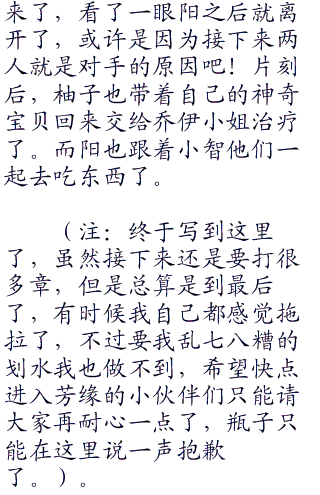 来了，看了一眼阳之后就离
开了，或许是因为接下来两
人就是对手的原因吧！片刻
后，柚子也带着自己的神奇
宝贝回来交给乔伊小姐治疗
了。而阳也跟着小智他们一
起去吃东西了。
（注：终于写到这里
了，虽然接下来还是要打很
多章，但是总算是到最后
了，有时候我自己都感觉拖
拉了，不过要我乱七八糟的
划水我也做不到，希望快点
进入芳缘的小伙伴们只能请
大家再耐心一点了，瓶子只
能在这里说一声抱歉
了。）。